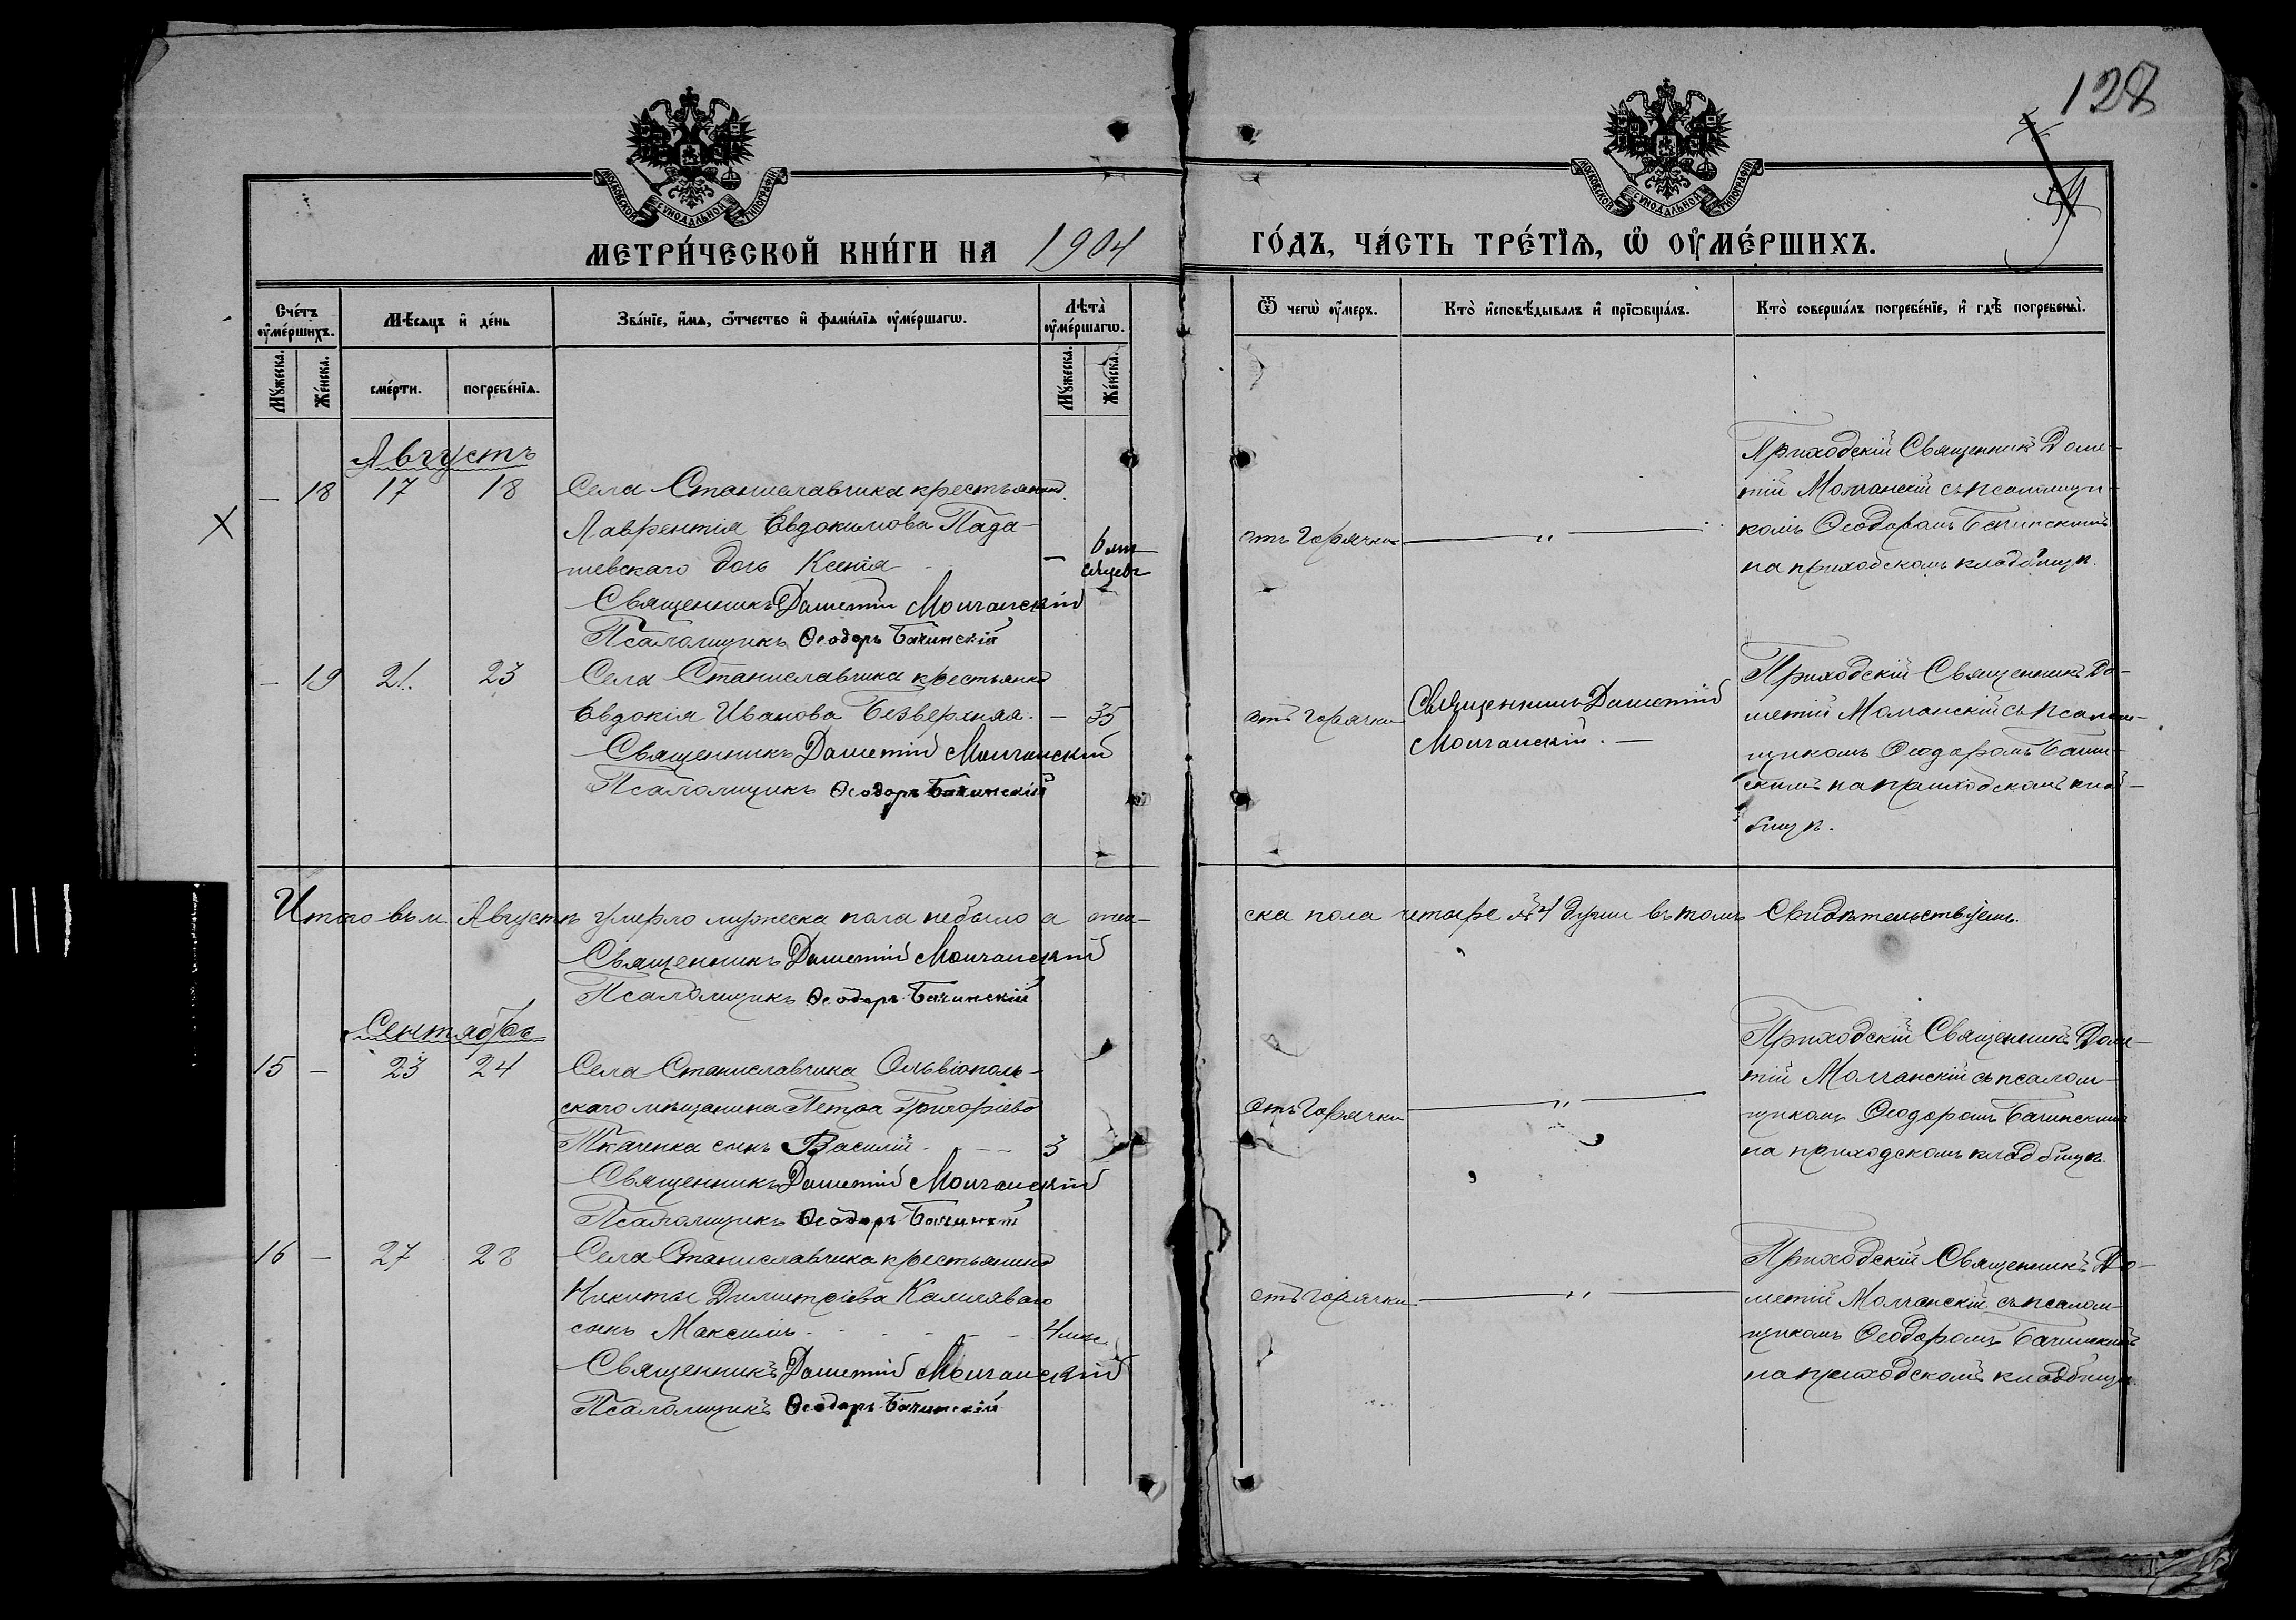 128
МОСКОВСКОЙ СѴНОДАЛЬНОЙ ТИПОГРАФІИ
МОСКОВСКОЙ СѴНОДАЛЬНОЙ ТИПОГРАФІИ
МЕТРИ́ЧЕСКОЙ КНИ́ГИ НА 1904 ГО́ДЪ, ЧА́СТЬ ТРЕ́ТЇѦ, Ѡ ОУМЕ́РШИХЪ.
Сче́тъ оумершихъ.
Мѣсяцъ и де́нь
Зва́нїе, и́мѧ, ѻтчество и фами́лїѧ оуме́ршагѡ.
Лѣта̀ оуме́ршагѡ.
Ѿ чегѡ̀ оумеръ.
Кто̀ и҆сповѣ́дывалъ и҆ прїѡбща́лъ.
Кто̀ соверша́лъ погребе́нїе, и҆ гдѣ̀ погребены̀.
Мꙋжеска.
Же́нска.
сме́рти.
погребе́нїѧ.
Мꙋжеска.
Же́нска.
Августъ
— 18 17 18 Села Станиславчика крестьянина
Лаврентія Евдокимова Пада-
шевскаго дочь Ксенія — 6 мѣ-
сяцевъ
Священникъ Дометій Молчанскій
Псаломщикъ Ѳеодоръ Бачинскій
отъ горячки — „ —
Приходскій Священникъ Доме-
тій Молчанскій съ псаломщи-
комъ Ѳеодоромъ Бачинскимъ
на приходскомъ кладбищѣ.
— 19 21. 23 Села Станиславчика крестьянка
Евдокія Иванова Безверхняя. — 35
Священникъ Дометій Молчанскій
Псаломщикъ Ѳеодоръ Бачинскій
отъ горячки
Священникъ Дометій
Молчанскій. —
Приходскій Священникъ До-
метій Молчанскій съ псалом-
щикомъ Ѳеодоромъ Бачин-
скимъ на приходскомъ клад-
бищѣ.
Итого въ м. Августѣ умерло мужеска пола небыло а жен-
ска пола четыре 4 души въ томъ Свидѣтельствуемъ.
Священникъ Дометій Молчанскій
Псаломщикъ Ѳеодоръ Бачинскій
Сентябрь
15 — 23 24 Села Станиславчика Ольвіополь-
скаго мѣщанина Петра Григоріева
Ткаченка сынъ Василій - - - 3
Священникъ Дометій Молчанскій
Псаломщикъ Ѳеодоръ Бачинскій
отъ горячки — „ —
Приходскій Священникъ Доме-
тій Молчанскій съ псалом-
щикомъ Ѳеодоромъ Бачинскимъ
на приходскомъ кладбищѣ.
16 — 27 28 Села Станиславчика крестьянина
Никиты Димитріева
сынъ Максимъ - - - 4 мѣс.
Священникъ Дометій Молчанскій
Псаломщикъ Ѳеодоръ Бачинскій
отъ горячки — „ —
Приходскій Священникъ До-
метій Молчанскій съ псалом-
щикомъ Ѳеодоромъ Бачинскимъ
на приходскомъ кладбищѣ.